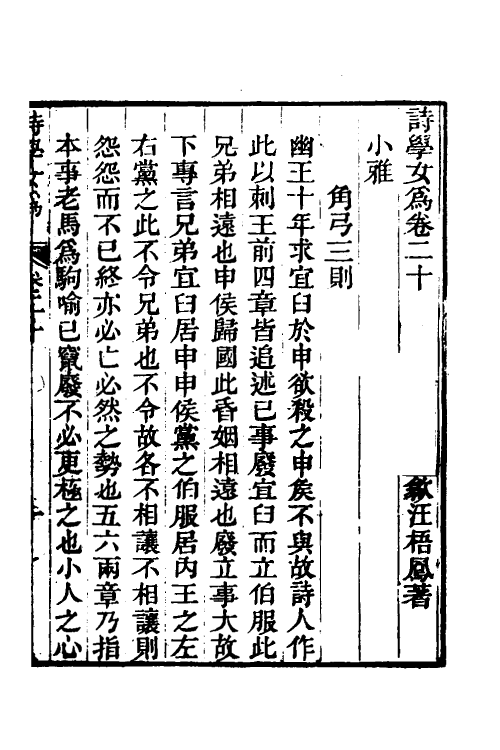 詩學女爲卷二十
歙汪梧鳳著
小雅
角弓三則
幽王十年求宜臼於申欲殺之申矦不與故詩人作
此以刺王前四章皆追述已事廢宜臼而立伯服此
兄弟相遠也申侯歸國此昏姻相遠也廢立事大故
下專言兄弟宜臼居申申侯黨之伯服居內王之左
右黨之此不令兄弟也不令故各不相讓不相讓則
怨怨而不已終亦必亡必然之勢也五六兩章乃指
本事老馬爲駒喻已竄廢不必更極之也小人之心
詩學女爲